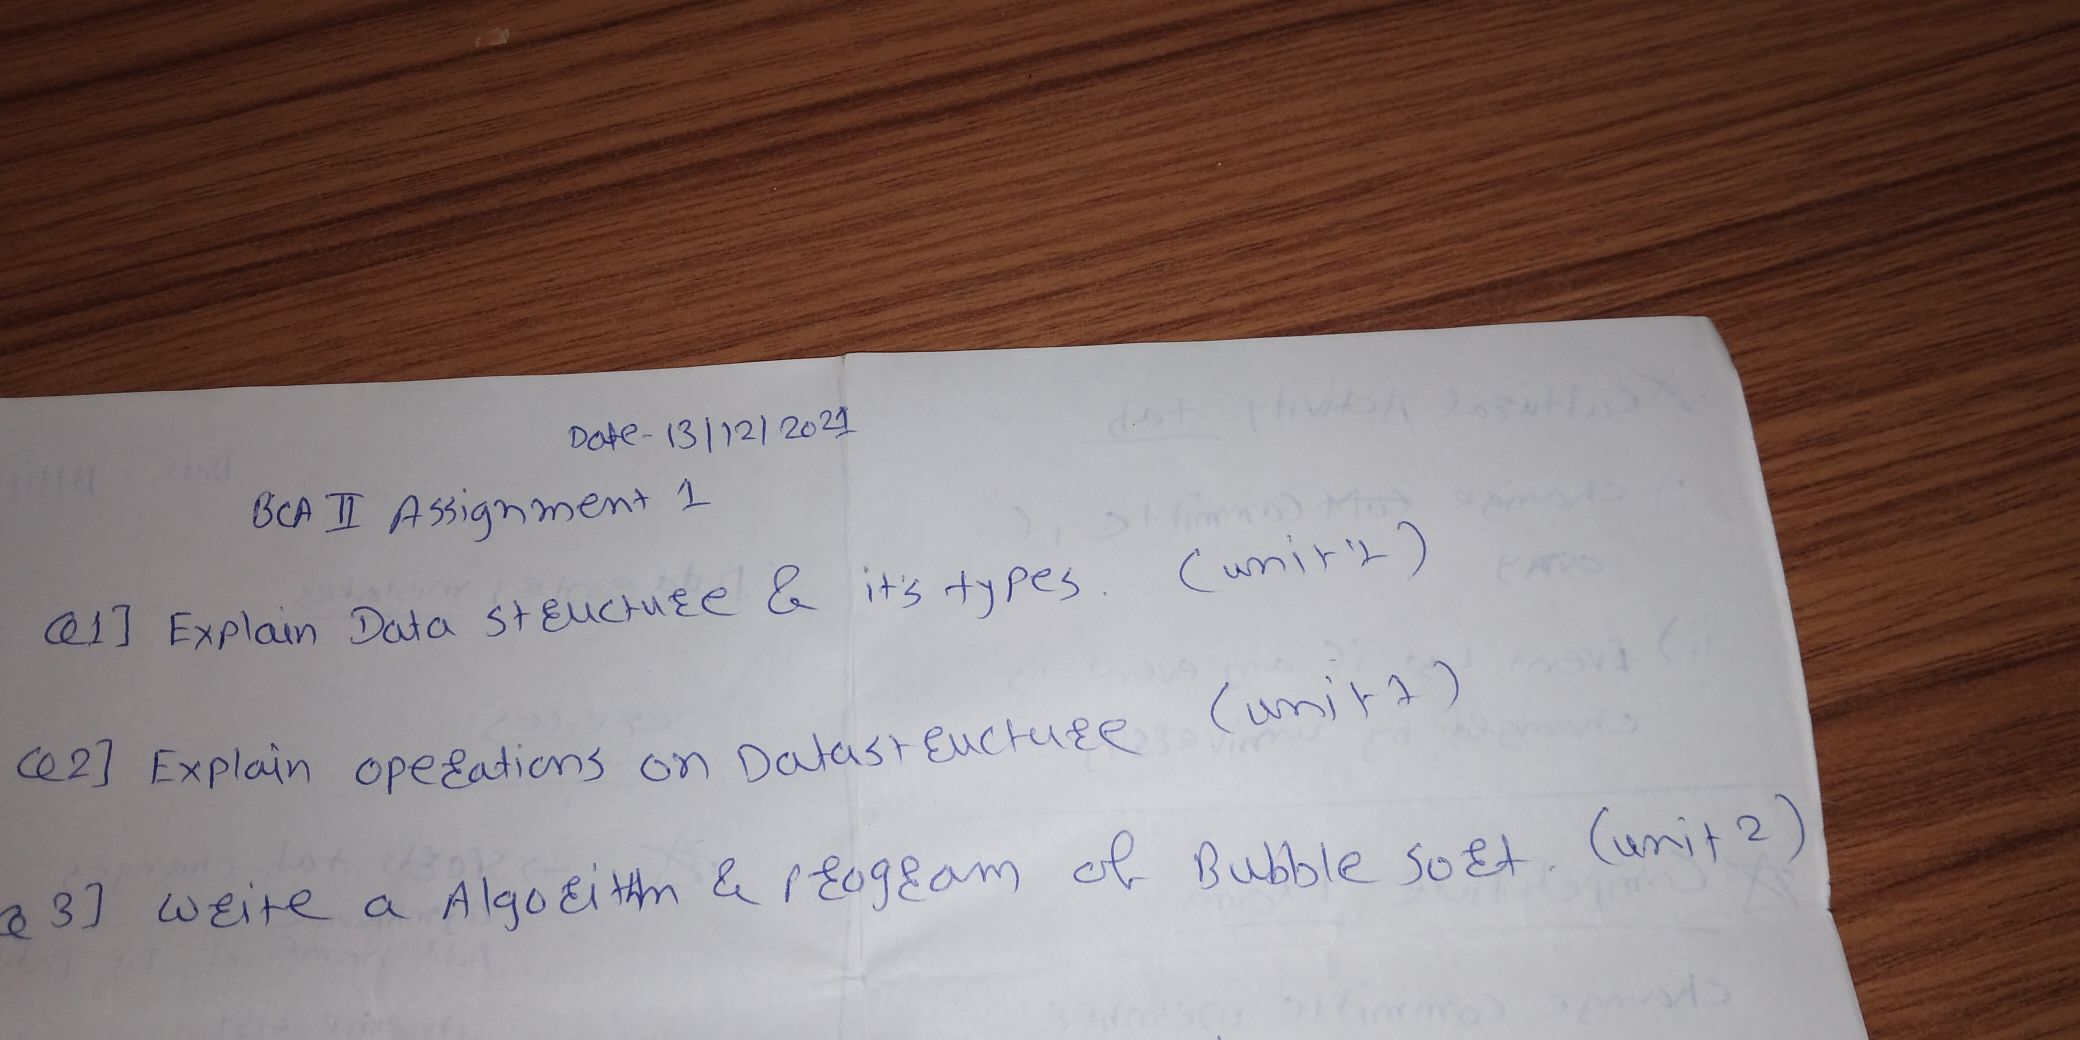 Date- 13/12/2021
BCA II Assignment 1
Q1] Explain Data structure & it's types. (unit 1)
Q2] Explain operations on Datastructure (unit 1)
Q3] write a Algorithm & program of Bubble sort. (unit 2)